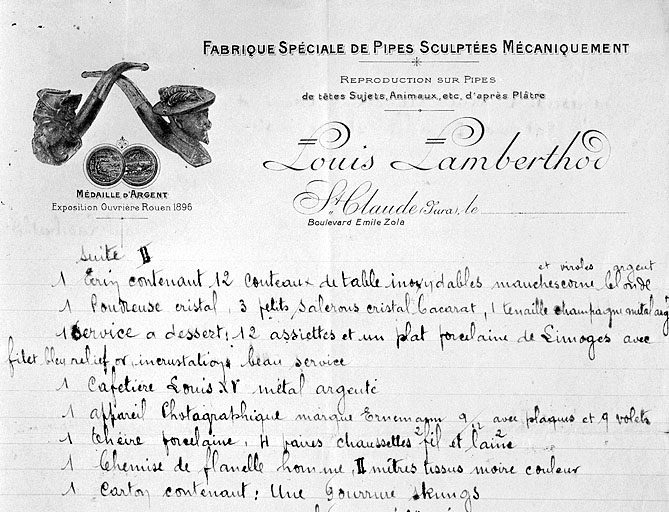 FABRIQUE SPÉCIALE DE PIPES SCULPTÉES MÉCANIQUEMENT
REPRODUCTION SUR PIPES
de têtes Sujets, Animaux, etc, d'après Plâtre
Louis Lamberthod
MÉDAILLE D'ARGENT
Exposition Ouvrière Rouen 1896
St Claude (Jura), le
Boulevard Emile Zola
Suite II
1 Ecrin contenant 12 couteaux de table inoxydables manches corne blonde et viroles argent
1 Poudreuse cristal, 3 petits salerous cristal bacarat, 1 tenaille champagne metal arg
1 Service a dessert: 12 assiettes et un plat porcelaine de Limoges avec
filet bleu relief or, incrustations beau service
1 Cafetière Louis XV métal argenté
1 appareil Photagraphique marque Ernemann 9/12 avec plaques et 9 volets
1 theière porcelaine, 4 paires chaussettes 2 fil et laine 2
1 Chemise de flanelle homme, II mètres tissus moire couleur
1 Carton contenant: Une skungs